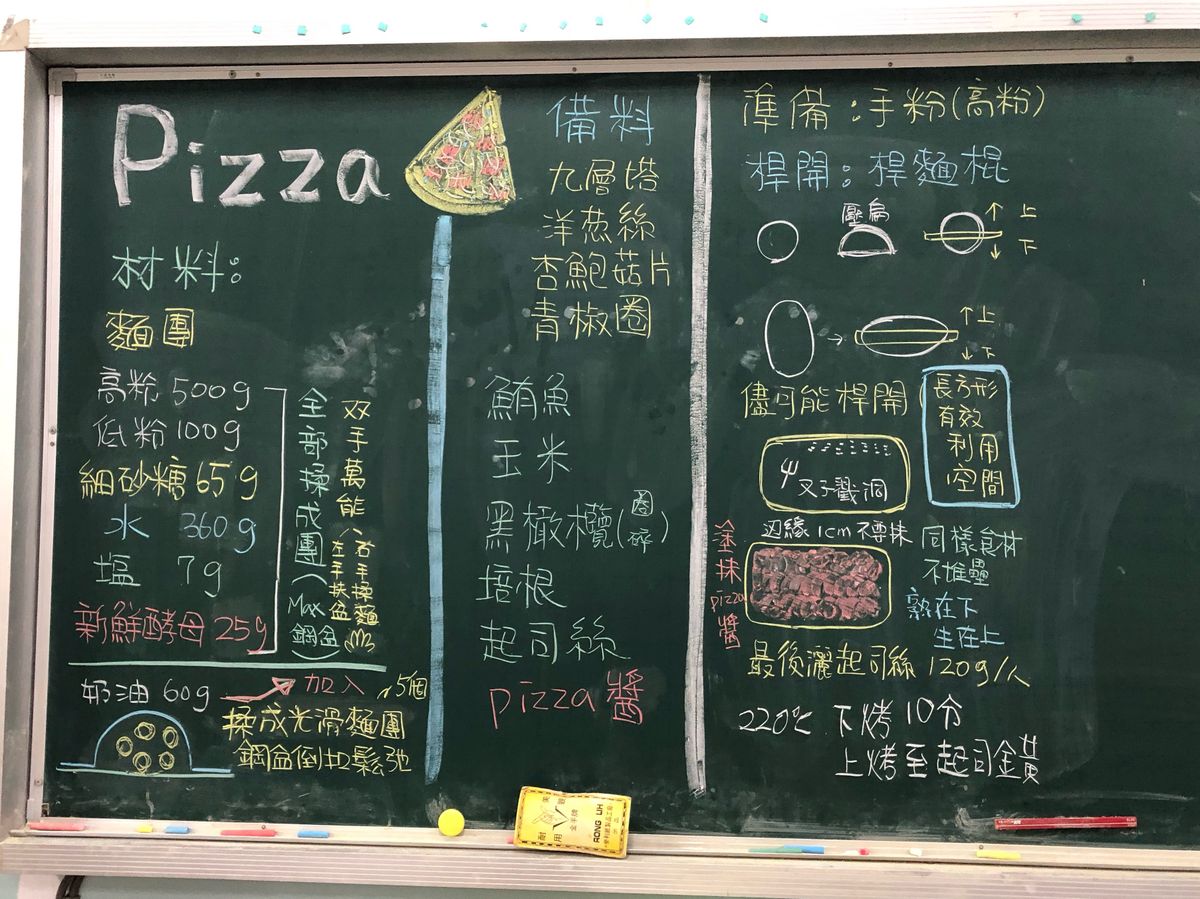 Pizza
材料:
麵團
高粉 500g
低粉 100g
細砂糖 65g
水 360g
塩 7g
新鮮酵母 25g
全部揉成團(Max鋼盆)
双手萬能
右手揉麵
左手扶盆
奶油 60g
加入
5個
揉成光滑麵團
鋼盆倒扣鬆弛
備料
九層塔
洋葱絲
杏鮑菇片
青椒圈
鮪魚
玉米
黑橄欖(圈碎)
培根
起司絲
pizza醬
準備:手粉(高粉)
桿開:桿麵棍
壓扁
上
下
上
下
儘可能桿開
長方形
有效
利用
空間
叉子戳洞
边緣1cm不要抹
塗抹pizza醬
同樣食材
不堆疊
熟在下
生在上
最後灑起司絲 120g/人
220℃ 下烤 10分
上烤至起司金黃
耐用
金羊牌
RONG LIH